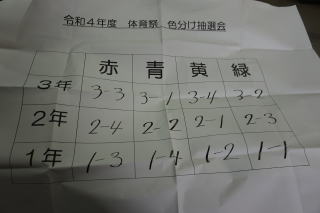 令和4年度 体育祭 色分け抽選会
赤 青 黄 緑
3年 3-3 3-1 3-4 3-2
2年 2-4 2-2 2-1 2-3
1年 1-3 1-4 1-2 1-1